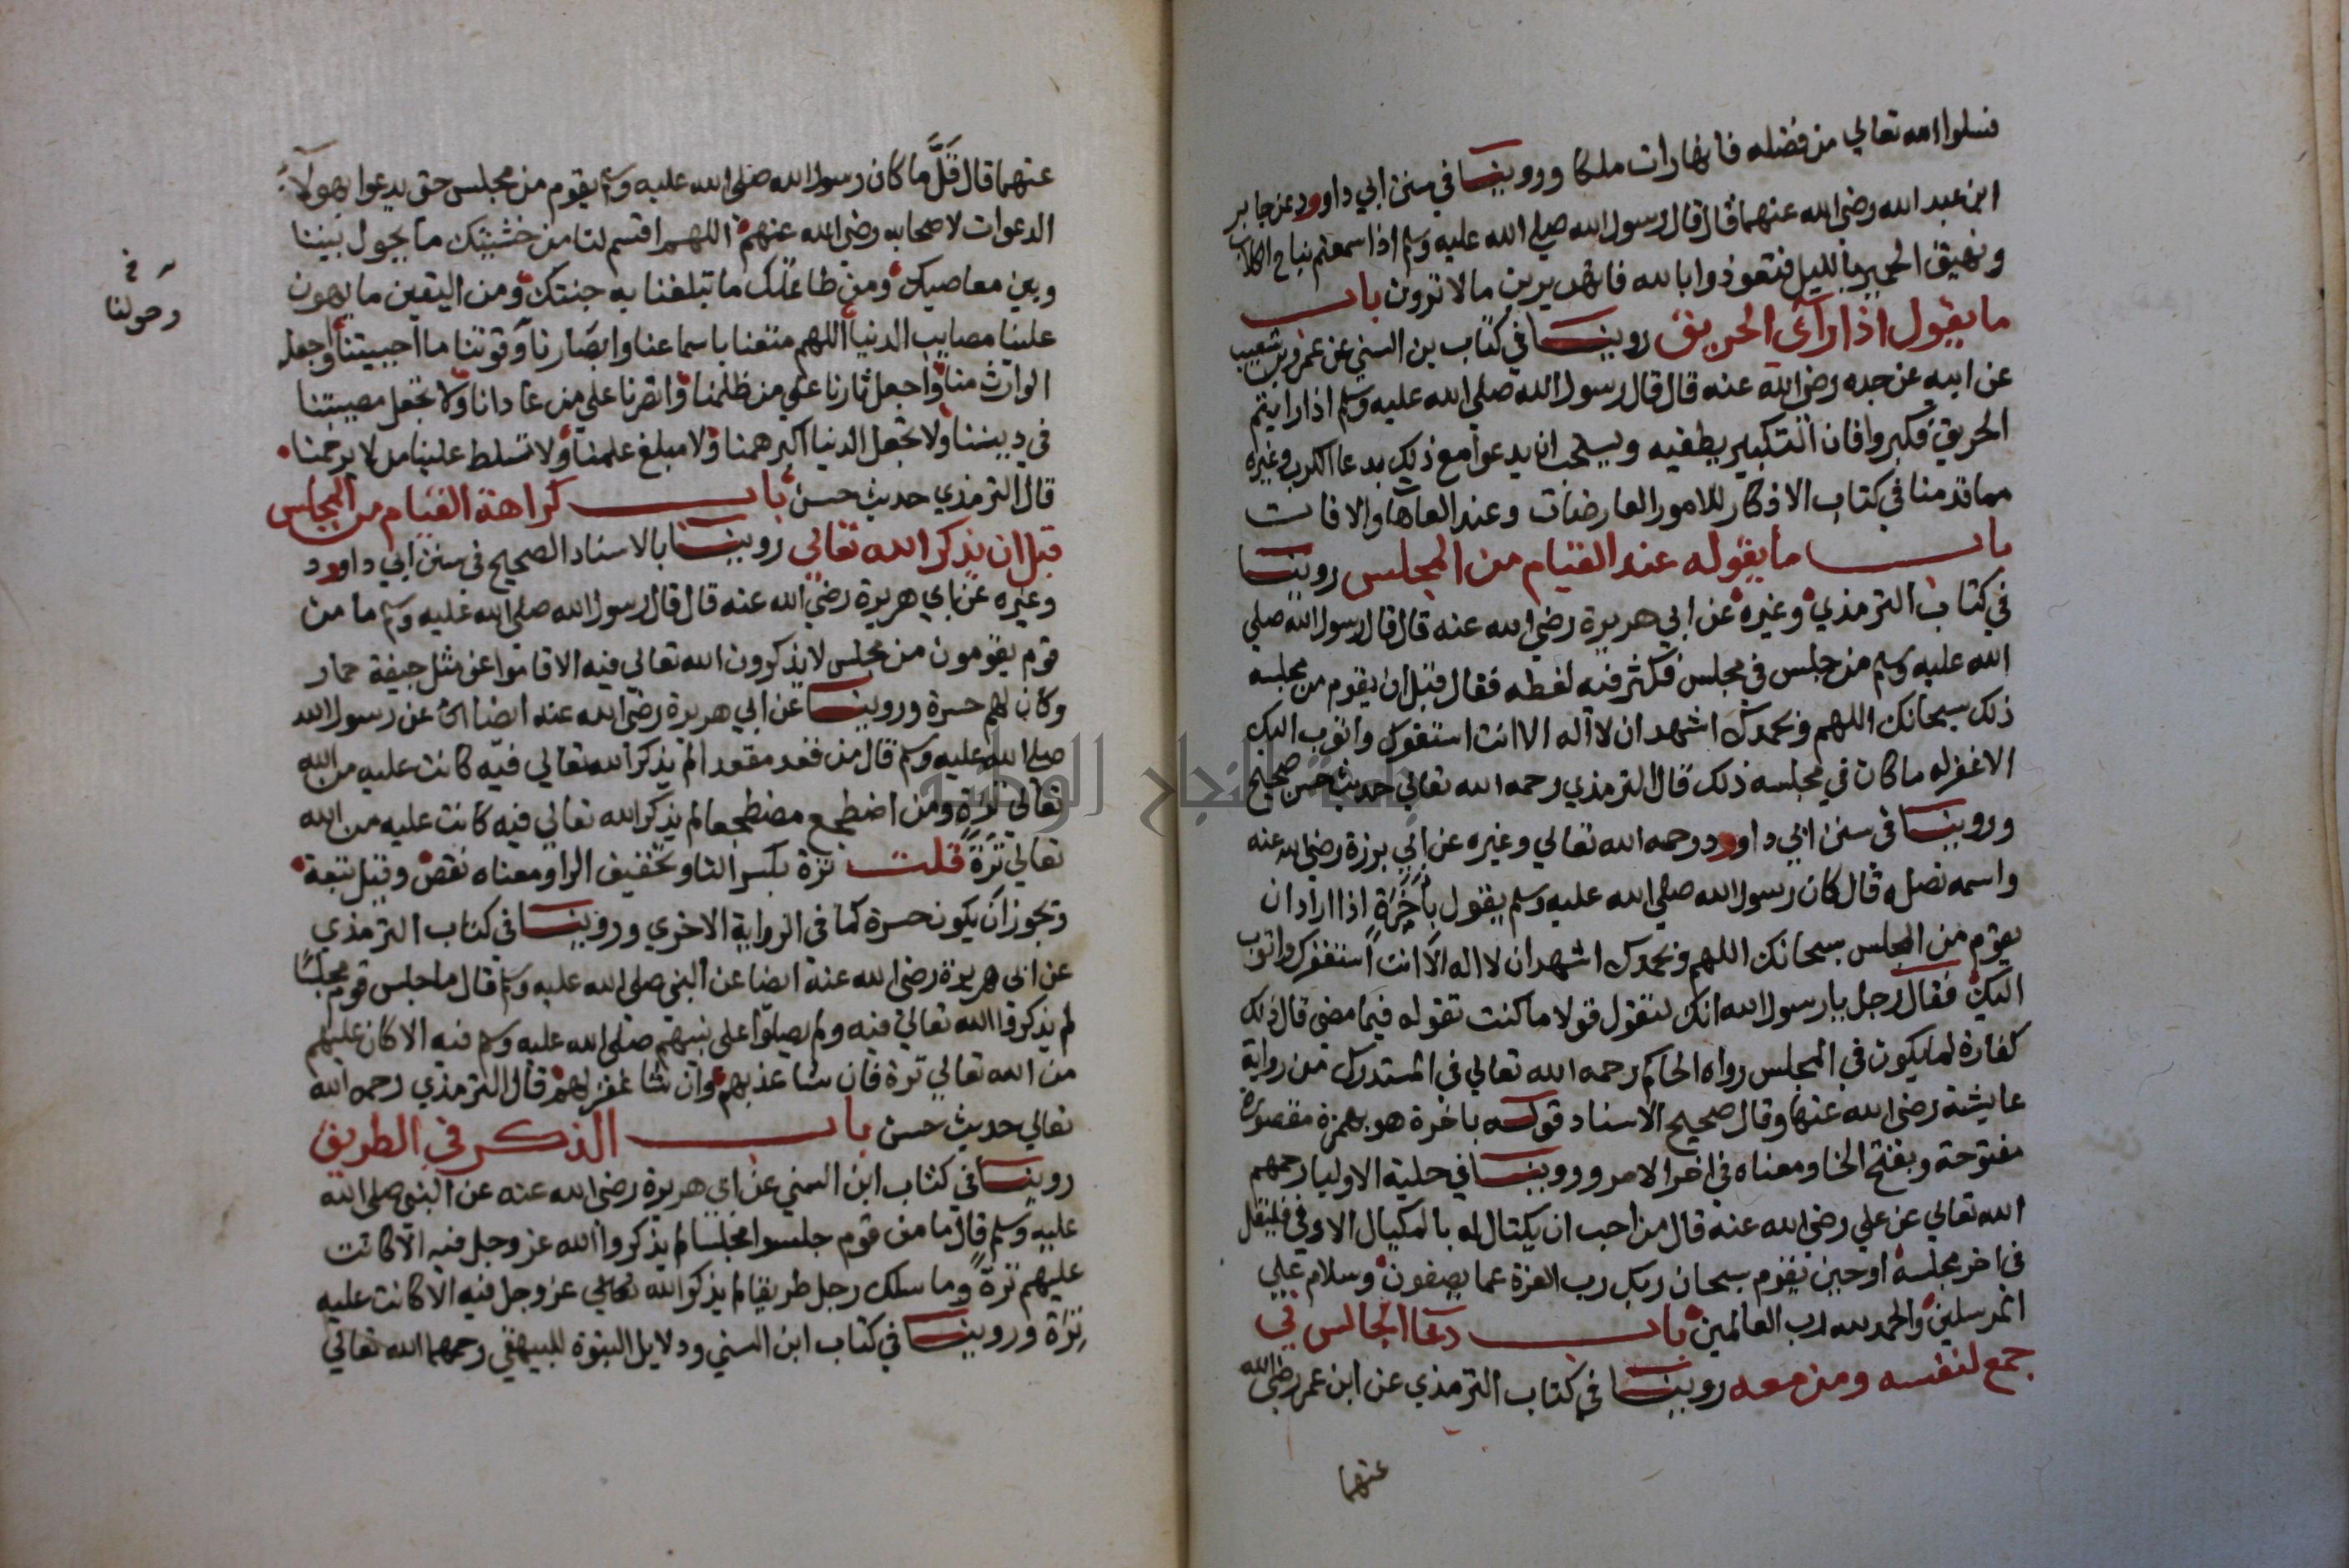 فسلوا الله تعالي من فضله فانها رات ملكا وروينا في سنن ابي داوود عن جابر
ابن عبد الله رضي الله عنهما قال قال رسول الله صلي الله عليه وسلم اذا سمعتم نباح الكلاب
ونهيق الحمير بالليل فتعوذوا بالله فانهن يرين ما لا ترون باب
ما يقول اذا رآي الحريق روينا في كتاب بن السني عن عمرو بن شعيب
عن ابيه عن جده رضي الله عنه قال قال رسول الله صلي الله عليه وسلم اذا رايتم
الحريق فكبروا فان التكبير يطفيه ويستحب ان يدعوا مع ذلك بدعا الكرب وغيره
مما قدمنا في كتاب الاذكار للامور العارضات وعند العاهات والافات
باب ما يقوله عند القيام من المجلس روينا
في كتاب الترمذي وغيره عن ابي هريرة رضي الله عنه قال قال رسول الله صلي
الله عليه وسلم من جلس في مجلس فكثر فيه لغطه فقال قبل ان يقوم من مجلسه
ذلك سبحانك اللهم وبحمدك اشهد ان لا اله الا انت استغفرك واتوب اليك
الا غفر له ما كان في مجلسه ذلك قال الترمذي رحمه الله تعالي حديث حسن صحيح
وروينا في سنن ابي داوود رحمه الله تعالي وغيره عن ابي برزة رضي الله عنه
واسمه نضله قال كان رسول الله صلي الله عليه وسلم يقول بأَخَرَةٍ اذا اراد ان
يقوم من المجلس سبحانك اللهم وبحمدك اشهد ان لا اله الا انت استغفرك واتوب
اليك فقال رجل يا رسول الله انك لتقول قولا ما كنت تقوله فيما مضي قال ذلك
كفارة لما يكون في المجلس رواه الحاكم رحمه الله تعالي في المستدرك من رواية
عايشة رضي الله عنها وقال صحيح الاسناد قوله باخرة هو بهمزة مقصورة
مفتوحة وبفتح الخا ومعناه في اخر الامر وروينا في حلية الاوليا رحمهم
الله تعالي عن علي رضي الله عنه قال من احب ان يكتال له بالمكيال الاوفي فليقل
في اخر مجلسه او حين يقوم سبحان ربك رب العزة عما يصفون وسلام علي
المرسلين والحمد لله رب العالمين باب دعا الجالس في
جمع لنفسه ومن معه روينا في كتاب الترمذي عن ابن عمر رضي الله
عنهما
عنهما قال قَلَّ ما كان رسول الله صلي الله عليه وسلم يقوم من مجلس حتي يدعوا بهولآء
الدعوات لاصحابه رضي الله عنهم اللهم اقسم لنا من خشيتك ما يحول بيننا
وبين معاصيك ومن طاعتك ما تبلغنا به جنتك ومن اليقين ما يهون
علينا مصايب الدنيا اللهم متعنا باسماعنا وابصارنا وقوتنا ما احييتنا واجعله
الوارث منا واجعل ثارنا علي من ظلمنا وانصرنا علي من عادانا ولا تجعل مصيبتنا
في ديننا ولا تجعل الدنيا اكبر همنا ولا مبلغ علمنا ولا تسلط علينا من لا يرحمنا
قال الترمذي حديث حسن باب كراهة القيام من المجلس
قبل ان يذكر الله تعالي روينا بالاسناد الصحيح في سنن ابي داوود
وغيره عن ابي هريرة رضي الله عنه قال قال رسول الله صلي الله عليه وسلم ما من
قوم يقومون من مجلس لا يذكرون الله تعالي فيه الا قاموا عن مثل جيفة حمار
وكان لهم حسرة وروينا عن ابي هريرة رضي الله عنه ايضا عن رسول الله
صلي الله عليه وسلم قال من قعد مقعدا لم يذكر الله تعالي فيه كانت عليه من الله
تعالي تِرَةٍ ومن اضطجع مضطجعا لم يذكر الله تعالي فيه كانت عليه من الله
تعالي تِرَةً قلت ترة بكسر التا وتخفيف الرا ومعناه نقص وقيل تبعة
وتجوز ان يكون حسرة كما في الرواية الاخري وروينا في كتاب الترمذي
عن ابي هريرة رضي الله عنه ايضا عن النبي صلي الله عليه وسلم قال ما جلس قوم مجلسًا
لم يذكروا الله تعالي فيه ولم يصلوا علي نبيهم صلي الله عليه وسلم فيه الا كان عليهم
من الله تعالي ترة فان شا عذبهم وان شا غفر لهم قال الترمذي رحمه الله
تعالي حديث حسن باب الذكر في الطريق
روينا في كتاب ابن السني عن ابي هريرة رضي الله عنه عن النبي صلي الله
عليه وسلم قال ما من قوم جلسوا مجلسا لم يذكروا الله عز وجل فيه الا كانت
عليهم ترة وما سلك رجل طريقا لم يذكر الله تعالي عز وجل فيه الا كانت عليه
تِرَة وروينا في كتاب ابن السني ودلايل النبوة للبيهقي رحمهما الله تعالي
خ
النجاح الوطنية